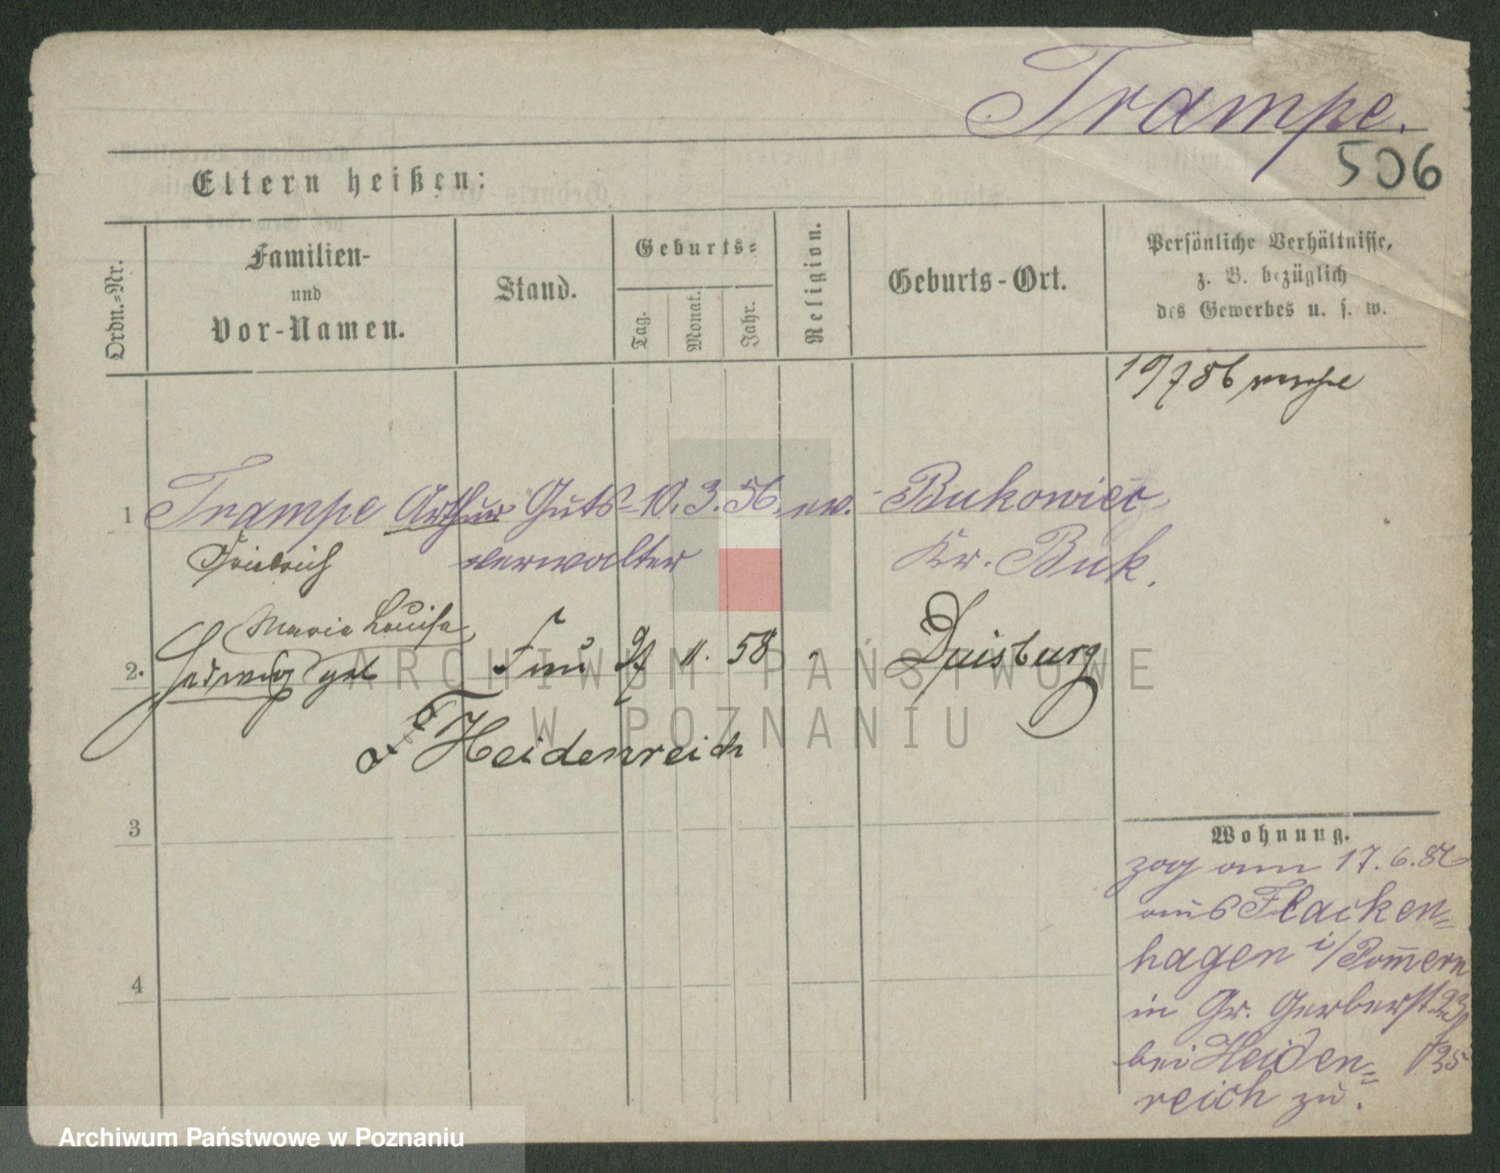 Trampe.
506
Eltern heißen:
Ordn.-Nr.
Familien-
und
Vor-Namen.
Stand.
Geburts-
Tag.
Monat.
Jahr.
Religion.
Geburts-Ort.
Persönliche Verhältnisse,
z. B. bezüglich
des Gewerbes u. s. w.
19/7 86
1 Trampe Arthur Guts- 10. 3. 56. ev. Bukowiec
Friedrich verwalter Kr. Buk.
Maria Louisa
2. Hedwig geb Frau 9/ 11. 58 Duisburg
Heidenreich
3
4
Wohnung.
zog am 17. 6. 86
aus Flacken-
hagen i/Pom̅ern
in Gr. Gerberst. 23
bei Heiden-
reich zu.
ARCHIWUM PAŃSTWOWE
W POZNANIU
Archiwum Państwowe w Poznaniu